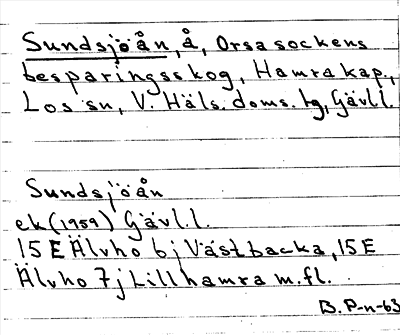 Sundsjöån, å, Orsa sockens
besparingsskog, Hamra kap.,
Los sn, V. Häls. doms. tg, Gävl.l.
Sundsjöån
ek (1959) Gävl.l.
15 E Älvho 6j Västbacka, 15 E
Älvho 7j Lillhamra m.fl.
B. P-n-63